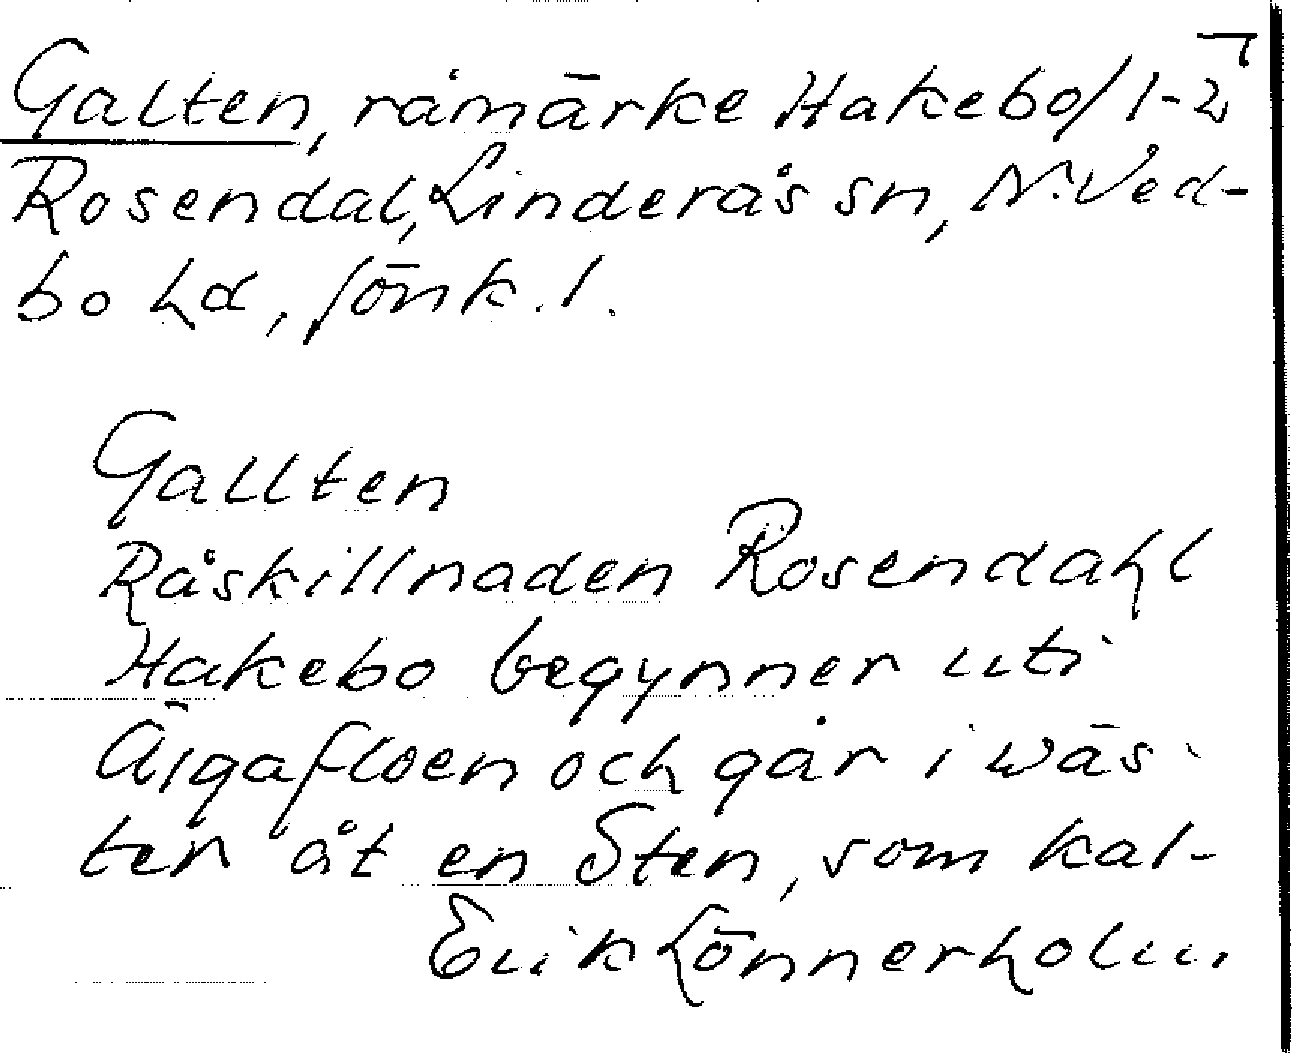 Galten, råmärke Hakebo/1-2
Rosendal, Linderås sn, N. Ved-
bo hd, Jönk. l.
Gallten
Råskillnaden Rosendahl
Hakebo begynner uti
Älgafloen och går i wäs-
ter åt en Sten, som kal-
Erik Lönnerholm